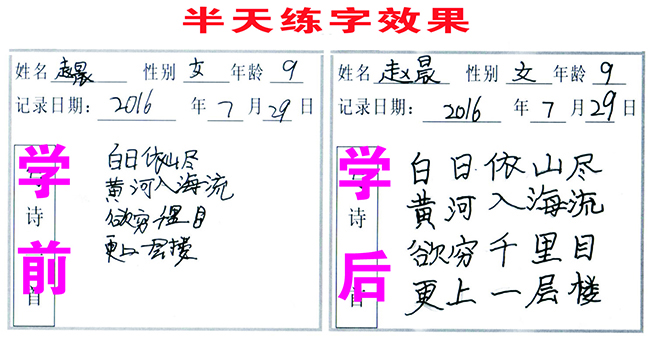 半天练字效果
姓名 赵晨 性别 女 年龄 9
记录日期: 2016 年 7 月 29 日
学前
诗
首
白日依山尽
黄河入海流
欲穷千里目
更上一层楼
姓名 赵晨 性别 女 年龄 9
记录日期: 2016 年 7 月 29 日
学后
诗
首
白日依山尽
黄河入海流
欲穷千里目
更上一层楼